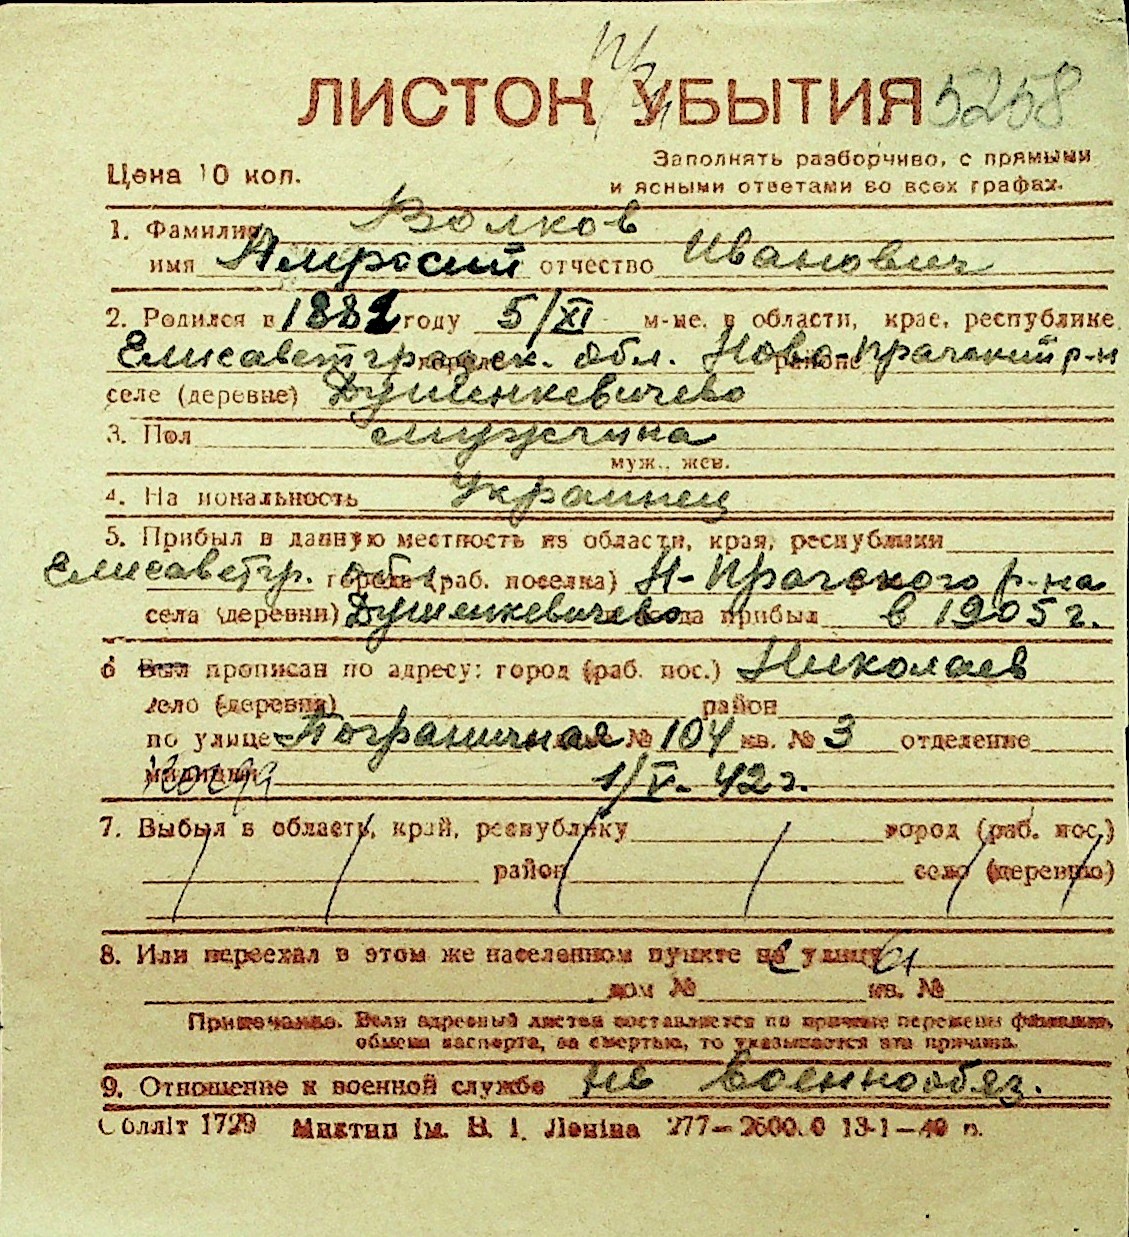 ЛИСТОК УБЫТИЯ 5258
Цена 10 коп.
Заполнять разборчиво, с прямыми
и ясными ответами во всех графах.
1. Фамилия Волков
имя Амросий отчество Иванович
2. Родился в 1882 году 5/XI м-це, в области, крае, республике
Елисаветградск. обл. городе Ново-Прагский р-н районе
селе (деревне) Душенкевичево
3. Пол мужчина
муж., жен.
4. Национальность Украинец
5. Прибыл в данную местность из области, края, республики
Елисаветгр. обл города (раб. поселка) Н-Прагского р-на
села (деревни) Душенкевичево когда прибыл в 1905 г.
6 Был прописан по адресу: город (раб. пос.) Николаев
село (деревня) район
по улице Пограничная дом № 104 кв. № 3 отделение
милиции 1/V-42 г.
7. Выбыл в область, край, республику город (раб. пос.)
район село (деревню)
8. Или переехал в этом же населенном пункте на улицу
дом № кв. №
Примечание. Если адресный листок составляется по причине перемены фамилии,
обмена паспорта, за смертью, то указывается эта причина.
9. Отношение к военной службе не военнообяз.
Обліт 1729 Миктип ім. В. І. Леніна 277—2600.0 13-1—40 р.